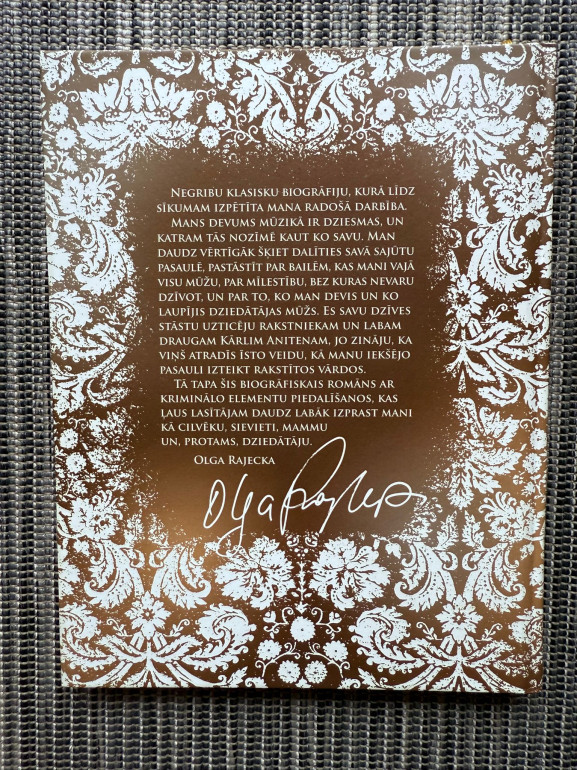 NEGRIBU KLASISKU BIOGRĀFIJU, KURĀ LĪDZ
SĪKUMAM IZPĒTĪTA MANA RADOŠĀ DARBĪBA.
MANS DEVUMS MŪZIKĀ IR DZIESMAS, UN
KATRAM TĀS NOZĪMĒ KAUT KO SAVU. MAN
DAUDZ VĒRTĪGĀK ŠĶIET DALĪTIES SAVĀ SAJŪTU
PASAULĒ, PASTĀSTĪT PAR BAILĒM, KAS MANI VAJĀ
VISU MŪŽU, PAR MĪLESTĪBU, BEZ KURAS NEVARU
DZĪVOT, UN PAR TO, KO MAN DEVIS UN KO
LAUPĪJIS DZIEDĀTĀJAS MŪŽS. ES SAVU DZĪVES
STĀSTU UZTICĒJU RAKSTNIEKAM UN LABAM
DRAUGAM KĀRLIM ANITENAM, JO ZINĀJU, KA
VIŅŠ ATRADĪS ĪSTO VEIDU, KĀ MANU IEKŠĒJO
PASAULI IZTEIKT RAKSTĪTOS VĀRDOS.
TĀ TAPA ŠIS BIOGRĀFISKAIS ROMĀNS AR
KRIMINĀLO ELEMENTU PIEDALĪŠANOS, KAS
ĻAUS LASĪTĀJAM DAUDZ LABĀK IZPRAST MANI
KĀ CILVĒKU, SIEVIETI, MAMMU
UN, PROTAMS, DZIEDĀTĀJU.
OLGA RAJECKA
Olga Rajecka